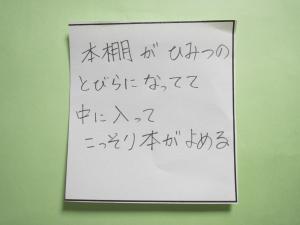 本棚が ひみつの
とびらになってて
中に入って
こっそり本がよめる